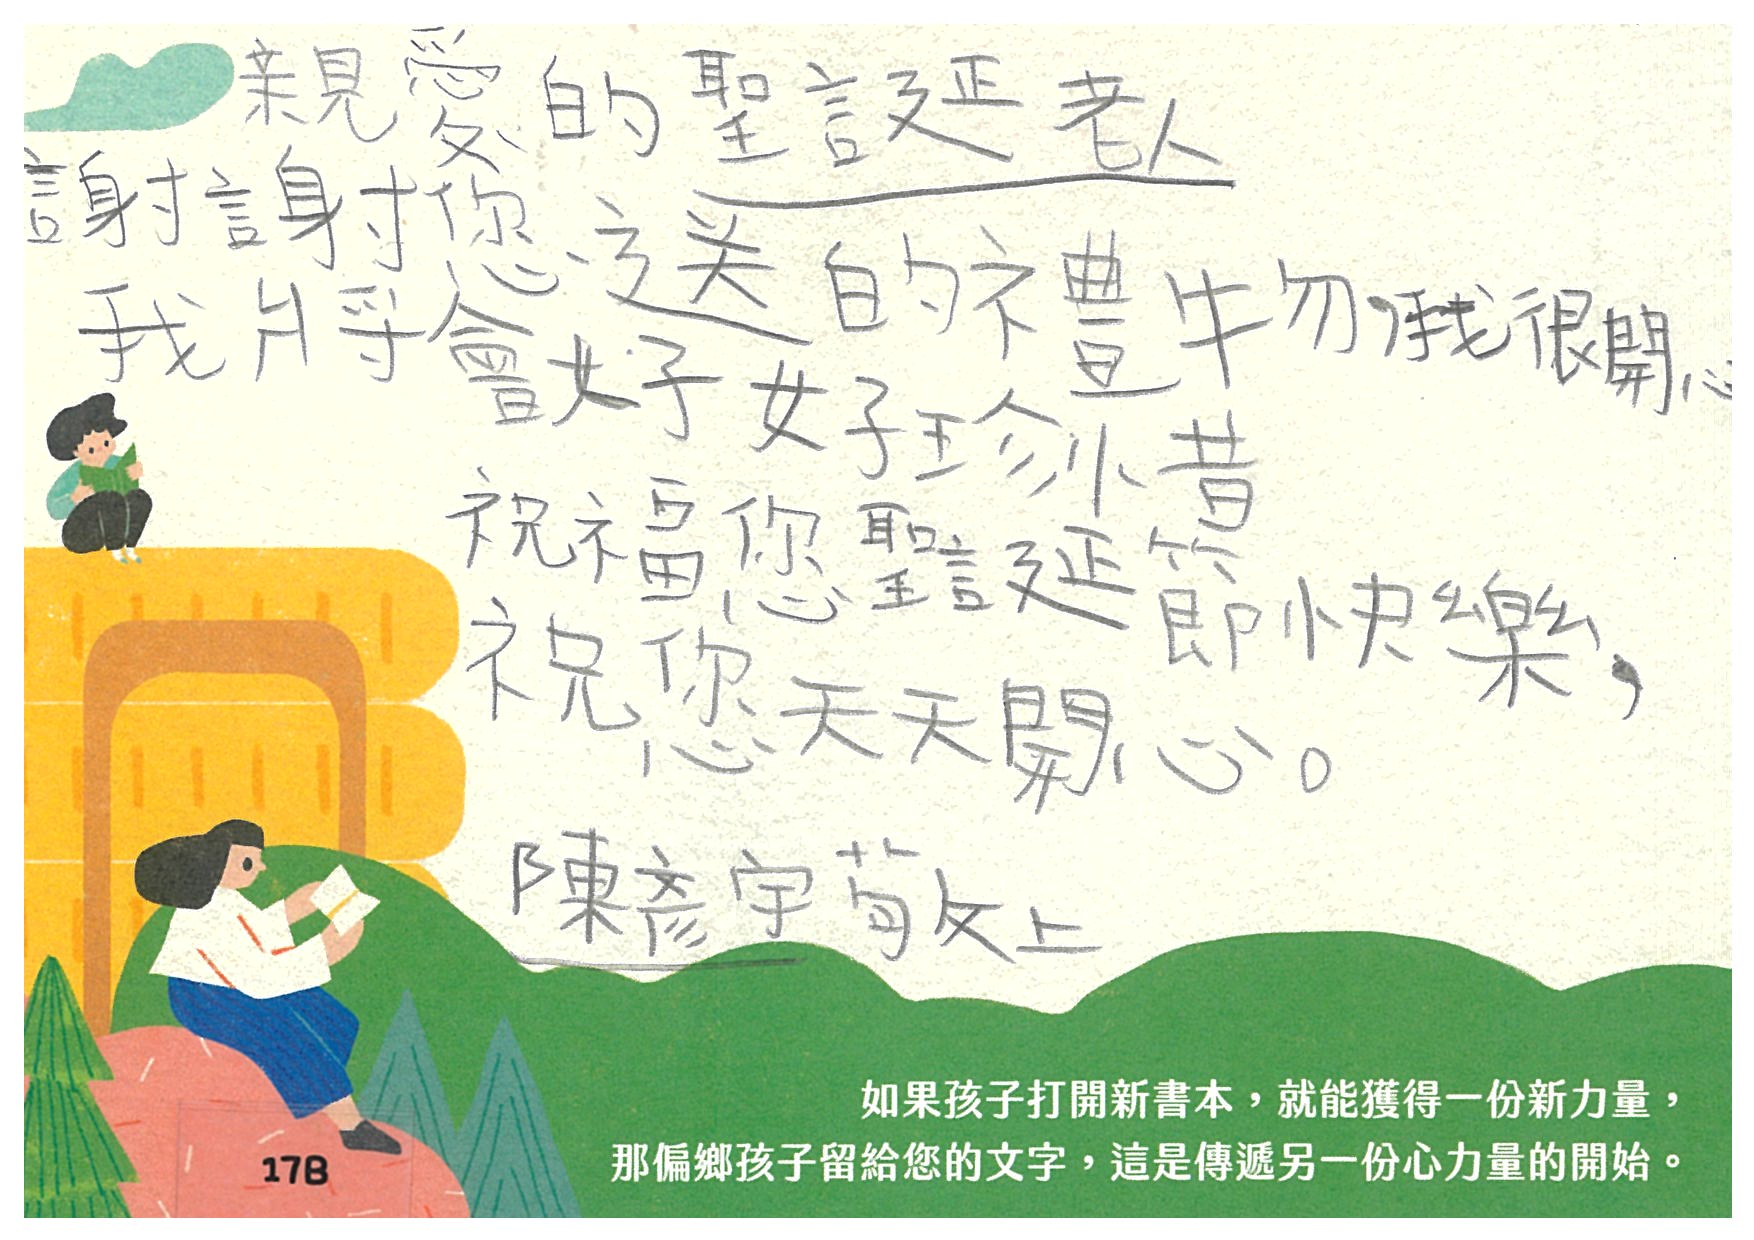 親愛的聖誕老人
謝謝您送的禮物,我很開心
我將會好好珍惜
祝福您聖誕節快樂,
祝您天天開心。
陳彥宇敬上
如果孩子打開新書本,就能獲得一份新力量,
那偏鄉孩子留給您的文字,這是傳遞另一份心力量的開始。
17B